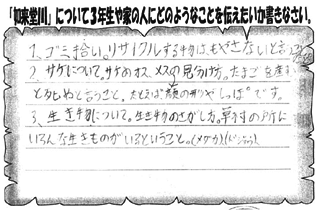 「如来堂川」について3年生や家の人にどのようなことを伝えたいか書きなさい。
1、ゴミ拾い。リサイクルする物はもやさないと言
2、サケについて。サケのオス、メスの見分け方。たまごを産
と死ぬと言うこと。たとえば顔の形やしっぽです。
3、生き物について。生き物のさがし方。草村の所に
いろんな生きものがいるということ。(メダカ)(ドジョウ)